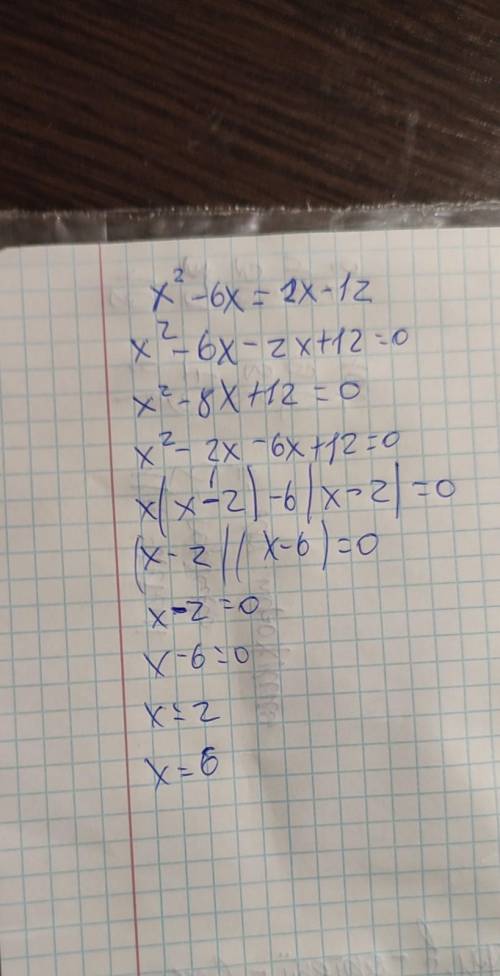 x² - 6x = 2x - 12
x² - 6x - 2x + 12 = 0
x² - 8x + 12 = 0
x² - 2x - 6x + 12 = 0
x(x - 2) - 6(x - 2) = 0
(x - 2)(x - 6) = 0
x - 2 = 0
x - 6 = 0
x = 2
x = 6